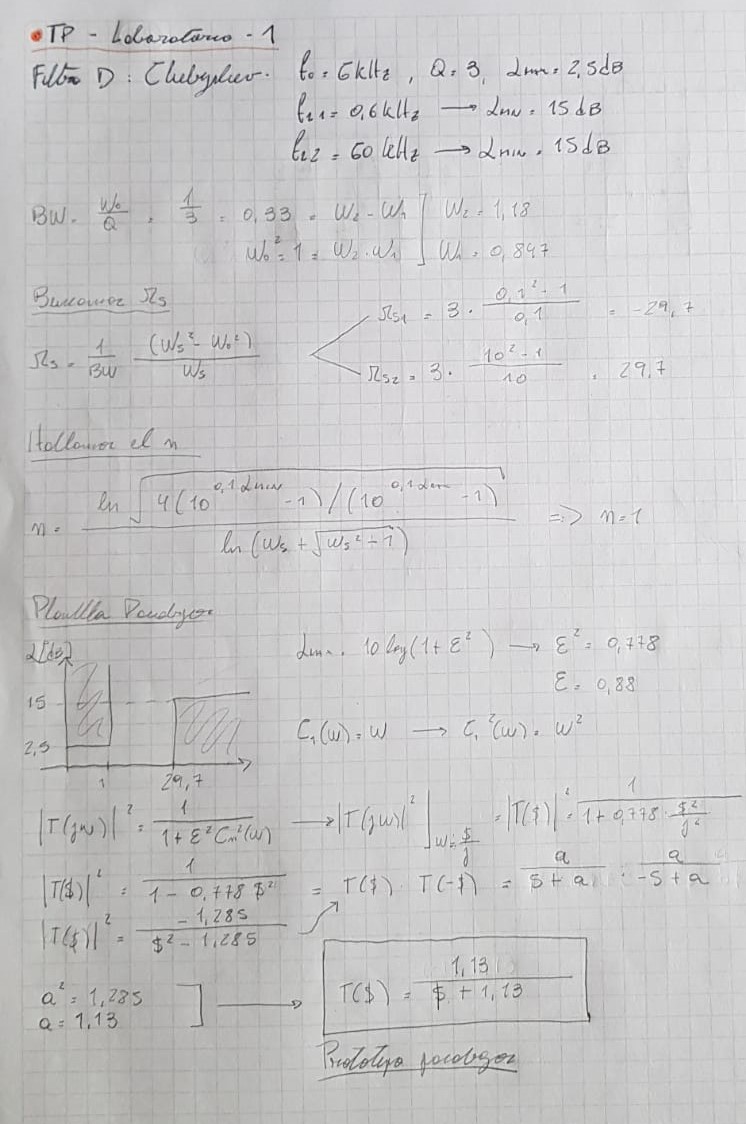 • TP - Laboratorio - 1
Filtro D: Chebyshev. f₀ = 6kHz, Q = 3, αmax = 2,5dB
fs1 = 0,6kHz → αmin = 15dB
fs2 = 60kHz → αmin = 15dB
BW = W₀/Q = 1/3 = 0,33 = W₂ - W₁ ] W₂ = 1,18
W₀² = 1 = W₂ . W₁ ] W₁ = 0,847
Buscamos Ωs
Ωs1 = 3 . (0,1² - 1)/0,1 = -29,7
Ωs = 1/BW (Ws² - W₀²)/Ws
Ωs2 = 3 . (10² - 1)/10 = 29,7
Hallamos el n
n = ln √(4(10^(0,1 αmin) - 1)/(10^(0,1 αmax) - 1)) / ln(Ws + √(Ws² - 1)) => n = 1
Plantilla Pasabajos
αmax = 10 log(1 + ε²) → ε² = 0,778
α[dB]
ε = 0,88
15
C₁(w) = w → C₁²(w) = w²
2,5
1 29,7
|T(jw)|² = 1/(1 + ε²Cn²(w)) → |T(jw)|² ]w = $/j = |T($)|² = 1/(1 + 0,778 . $²/j²)
|T($)|² = 1/(1 - 0,778 $²) = T($) . T(-$) = a/(s + a) . a/(-s + a)
|T($)|² = -1,285/($² - 1,285)
a² = 1,285
a = 1,13 ] → T($) = 1,13/($ + 1,13)
Prototipo pasabajos